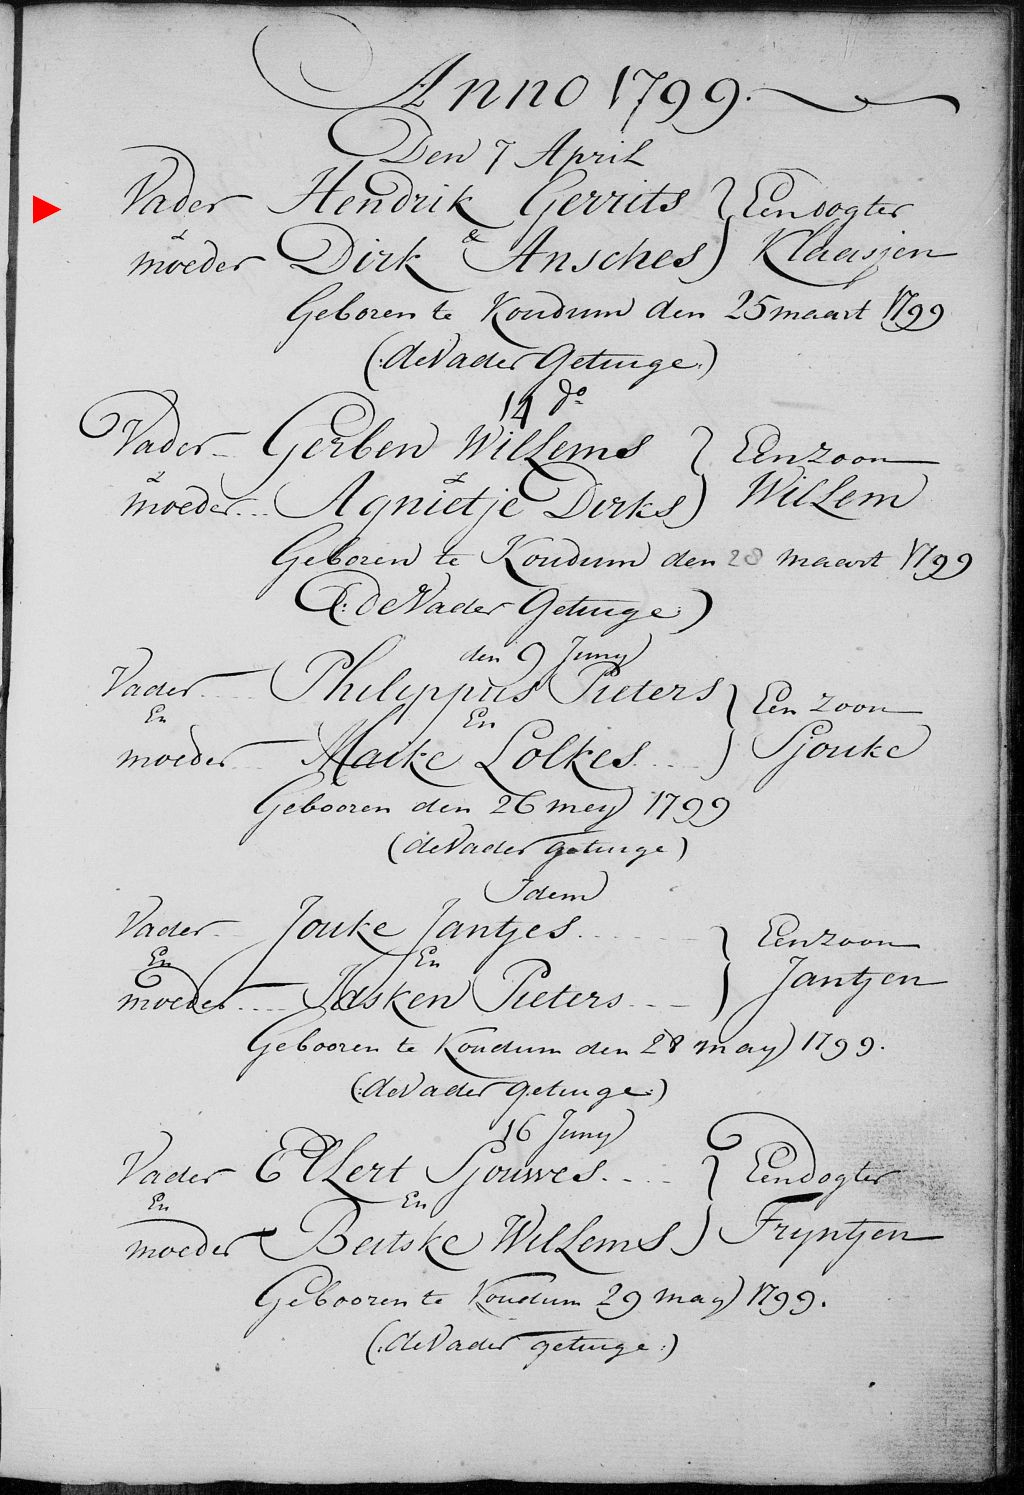 Anno 1799.
Den 7 April
Vader Hendrik Gerrits } Een dogter
& &
moeder Dirk Ansches } Klaasjen
Geboren te Koudum den 25 maart 1799
(: de Vader Getuige :)
14 do
Vader Gerben Willems } Een zoon
& &
moeder... Agnietje Dirks } Willem
Geboren te Koudum den 28 maart 1799
(: de Vader Getuige :)
den 9 Juny
Vader Philippus Pieters } Een zoon
En En
moeder Maike Lolkes.... } Sjouke
Gebooren den 26 mey 1799
(de Vader getuige)
Idem
Vader Jouke Jantjes....... } Een zoon
En En
moeder.... Idsken Pieters... } Jantjen
Gebooren te Koudum den 28 may 1799.
(: de Vader getuige :)
16 Juny
Vader Ellert Sjouwes..... } Een dogter
En En
moeder Beitske Willems } Fryntjen
Gebooren te Koudum 29 may 1799.
(: de Vader getuige :)